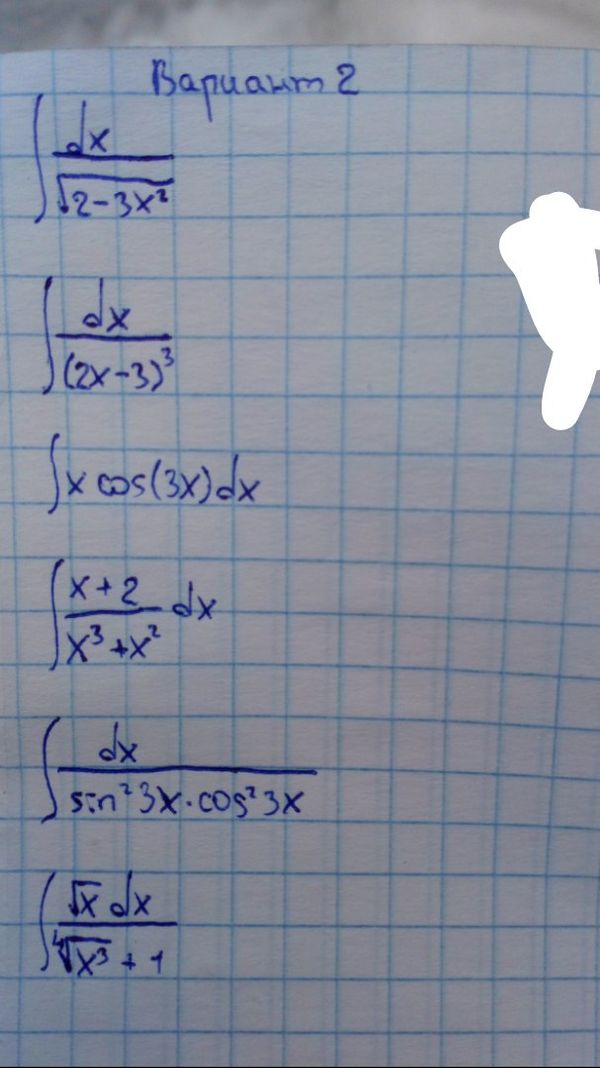 Вариант 2
∫ dx / √(2-3x²)
∫ dx / (2x-3)³
∫ x cos(3x) dx
∫ (x+2) / (x³+x²) dx
∫ dx / (sin²3x·cos²3x)
∫ √x dx / (⁴√(x³) + 1)